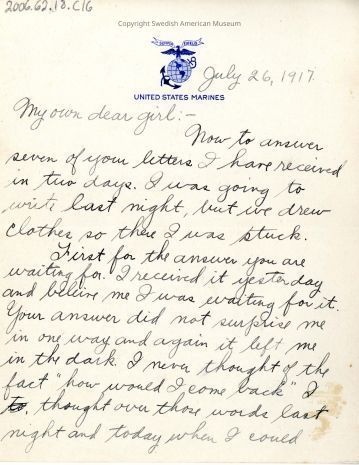 2006.62.18.C16
Copyright Swedish American Museum
SEMPER FIDELIS
UNITED STATES MARINES
July 26, 1917
My own dear girl:-
Now to answer
seven of your letters I have received
in two days. I was going to
write last night, but we drew
clothes so there I was stuck.
First for the answer you are
waiting for. I received it yesterday
and believe me I was waiting for it.
Your answer did not surprise me
in one way and again it left me
in the dark. I never thought of the
fact "how would I come back" I
to, thought over those words last
night and today when I could